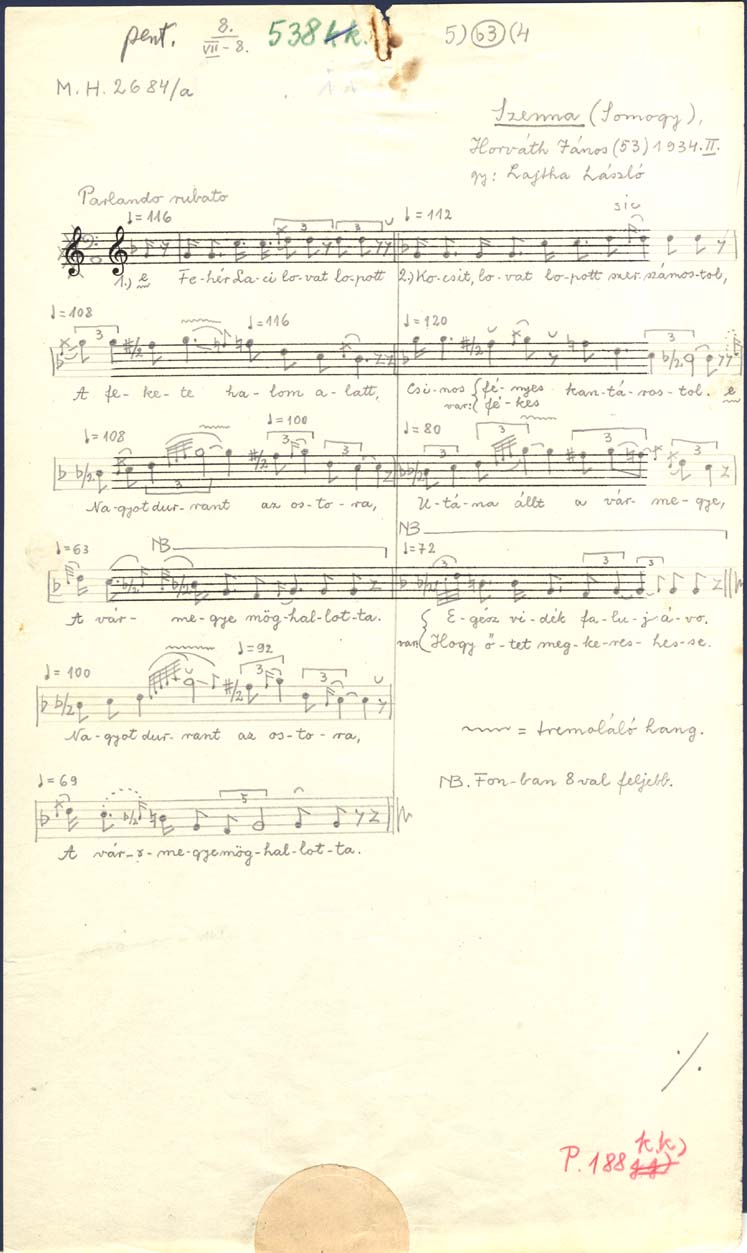 pent. 8. VII-8. 538 k. 5) b3 (4
M.H. 2684/a
Szenna (Somogy),
Horváth János (53) 1934. II.
gy: Lajtha László
Parlando rubato
♩= 116 ♩= 112 sic
3 3
1.) e Fe-hér La-ci lo-vat lo-pott 2.) Ko-csit, lo-vat lo-pott szer-számos-tol,
♩= 108 ♩= 116 ♩= 120
3 3
A fe-ke-te ha-lom a-latt, Csi-nos fé-nyes kan-tá-ros-tol. e
var: fé-kes
♩= 108 ♩= 100 ♩= 80
3 3 3 3 3 3 3
Nagyot dur-rant az os-to-ra, U-tá-na állt a vár-me-gye,
NB
♩= 63 NB ♩= 72
3 3 3
A vár-me-gye mög-hal-lot-ta. E-gész vi-dék fa-lu-j-á-vo.
var: Hogy ő-tet meg-ke-res-hes-se.
♩= 100 ♩= 92
3 3
Na-gyot dur-rant az os-to-ra,
= tremoláló hang.
NB. Fon-ban 8val feljebb.
♩= 69
5
A vár-r-me-gye mög-hal-lot-ta.
·/.
P. 188 k.k)